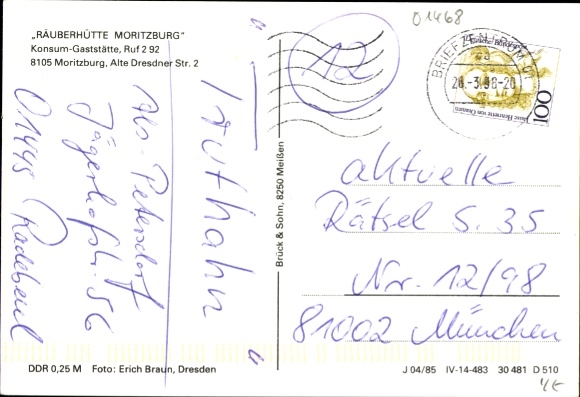 „RÄUBERHÜTTE MORITZBURG"
Konsum-Gaststätte, Ruf 2 92
8105 Moritzburg, Alte Dresdner Str. 2
01468
12
BRIEFZENTRUM 01
26.-3.98-20
100
" Truthahn "
Petersdorf
Jägerhofstr. 56
01445 Radebeul
Brück & Sohn, 8250 Meißen
aktuelle
Rätsel S. 35
Nr. 12/98
81002 München
DDR 0,25 M Foto: Erich Braun, Dresden
J 04/85 IV-14-483 30 481 D 510